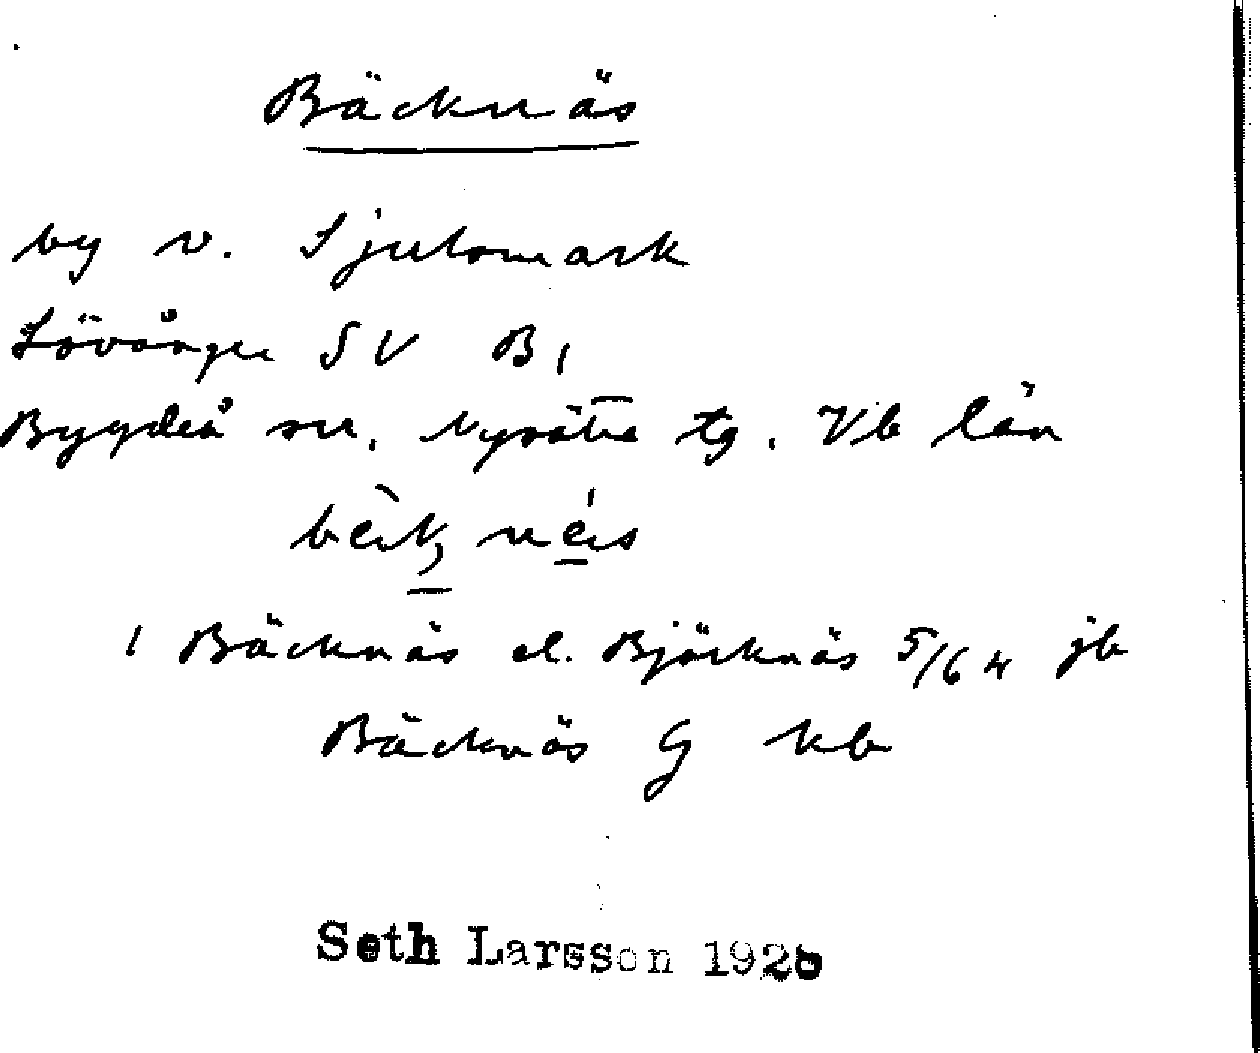 Bäcknäs
by v. Sjulsmark
Lövånger SV B1
Bygdeå sn. Nysätra tg. Vb län
1 Bäcknäs el. Björknäs 5/64 jb
Bäcknäs G kb
Seth Larsson 192